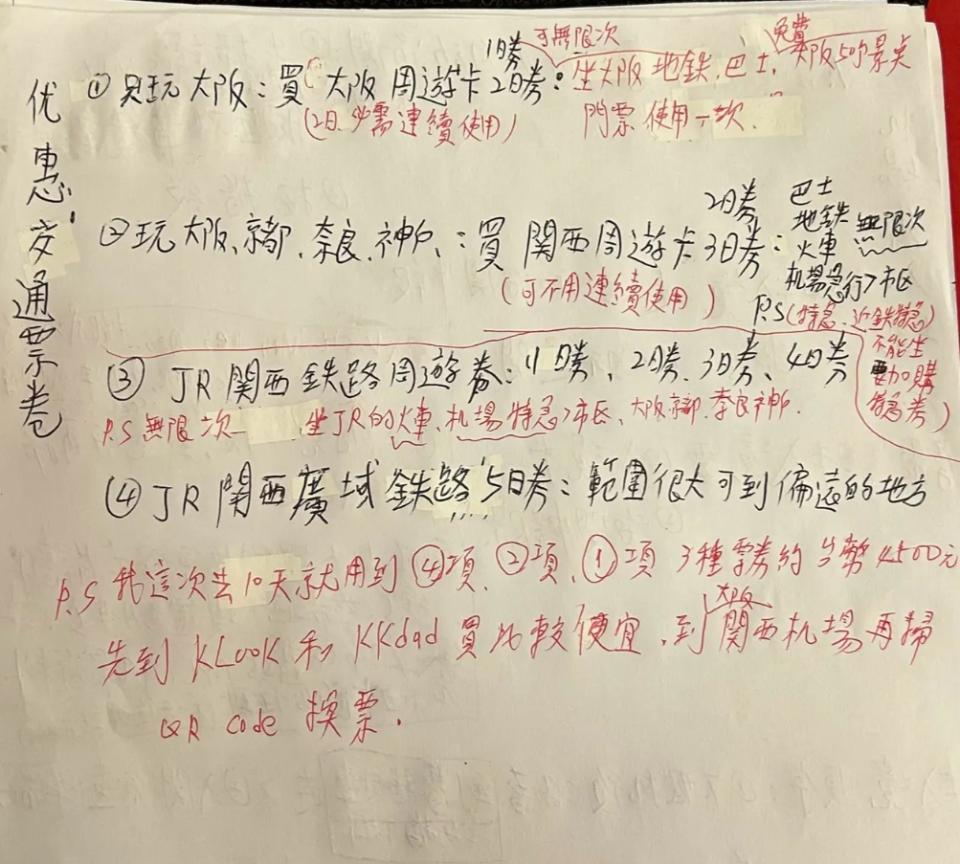 优惠交通票卷
1日券 可無限次 免費
① 只玩大阪：買 大阪周遊卡2日券：坐大阪 地鉄、巴士、大阪50的景点
(2日、必需連續使用) 門票 使用一次.
2日券 巴士
② 玩大阪、京都、奈良、神戶、：買 関西周遊卡3日券：地鉄 火車 無限次
(可不用連續使用) 机場急行→市区
P.S(特急、近鉄特急) 不能坐 要加購 特急券)
③ JR関西鉄路周遊券：1日券、2日券、3日券、4日券
P.S 無限次 坐JR的火車、机場特急→市区、大阪京都、奈良神戶.
④ JR関西廣域鉄路5日券：範圍很大可到偏遠的地方
P.S 我這次去10天就用到④項、②項、①項 3種票券約台幣4500元
先到KLooK和KKdad買比較便宜，到大阪関西机場再掃
QR code 換票.